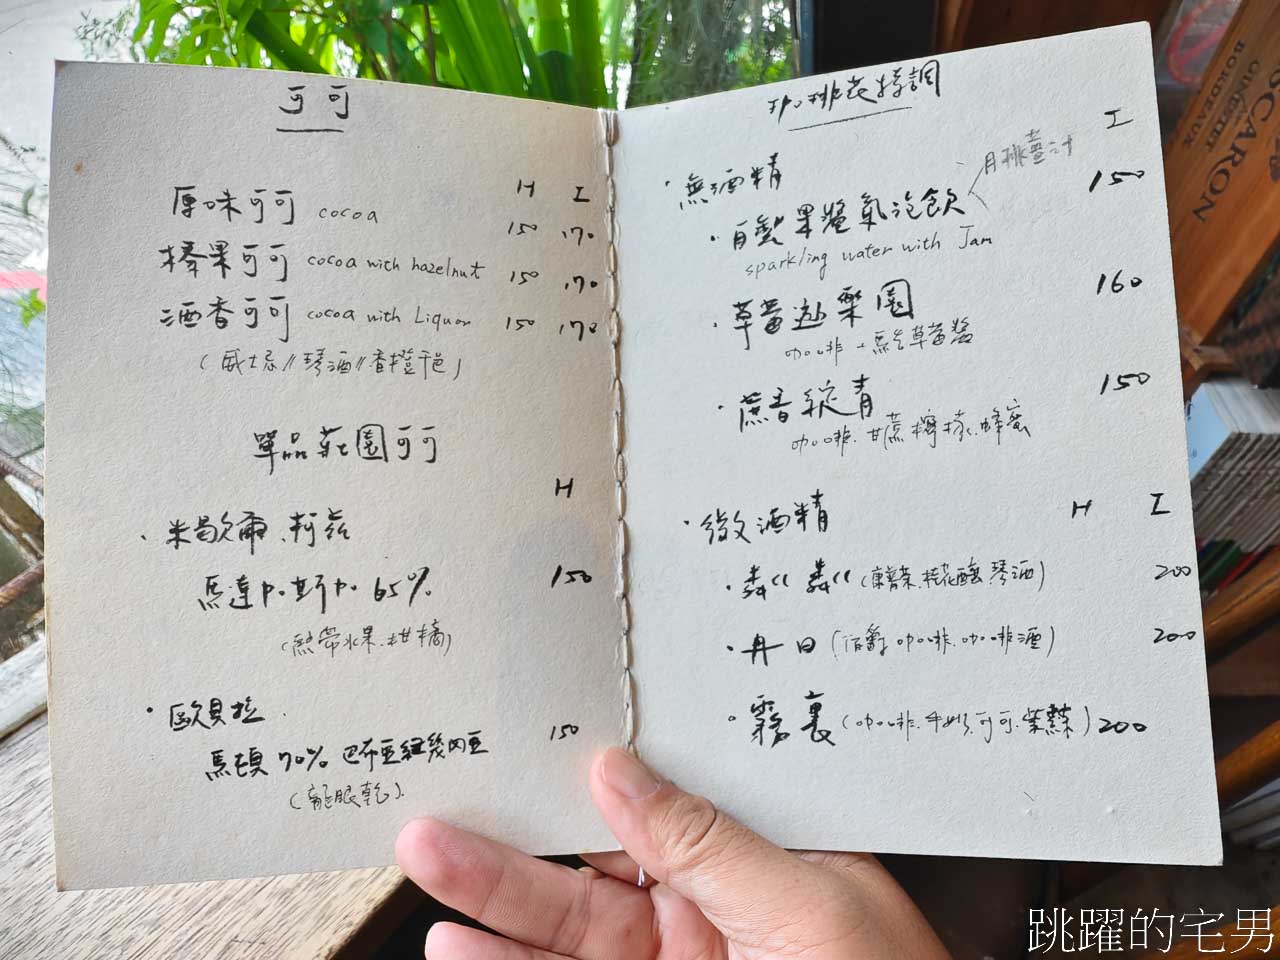 可可
H I
原味可可 cocoa 150 170
榛果可可 cocoa with hazelnut 150 170
酒香可可 cocoa with Liquor 150 170
(威士忌//琴酒//香橙干邑)
單品莊園可可
H
·米歇爾.柯茲
馬達加斯加 65% 150
(熱帶水果.柑橘)
·歐貝拉.
馬頓 70% 巴布亞紐幾內亞 150
(龍眼乾).
咖啡花特調
I
·無酒精
月桃薑汁
·自製果醬氣泡飲 150
sparkling water with Jam
·草莓遊樂園 160
咖啡.一點點草莓醬
·蔗音綻青 150
咖啡.甘蔗檸檬.蜂蜜
·微酒精 H I
(康普茶.桂花釀 琴酒) 200
·丹日 (咖啡.咖啡酒) 200
·霧裏 (咖啡.牛奶.可可.紫蘇) 200
SCARON
GUINESTET
BORDEAUX
跳躍的宅男